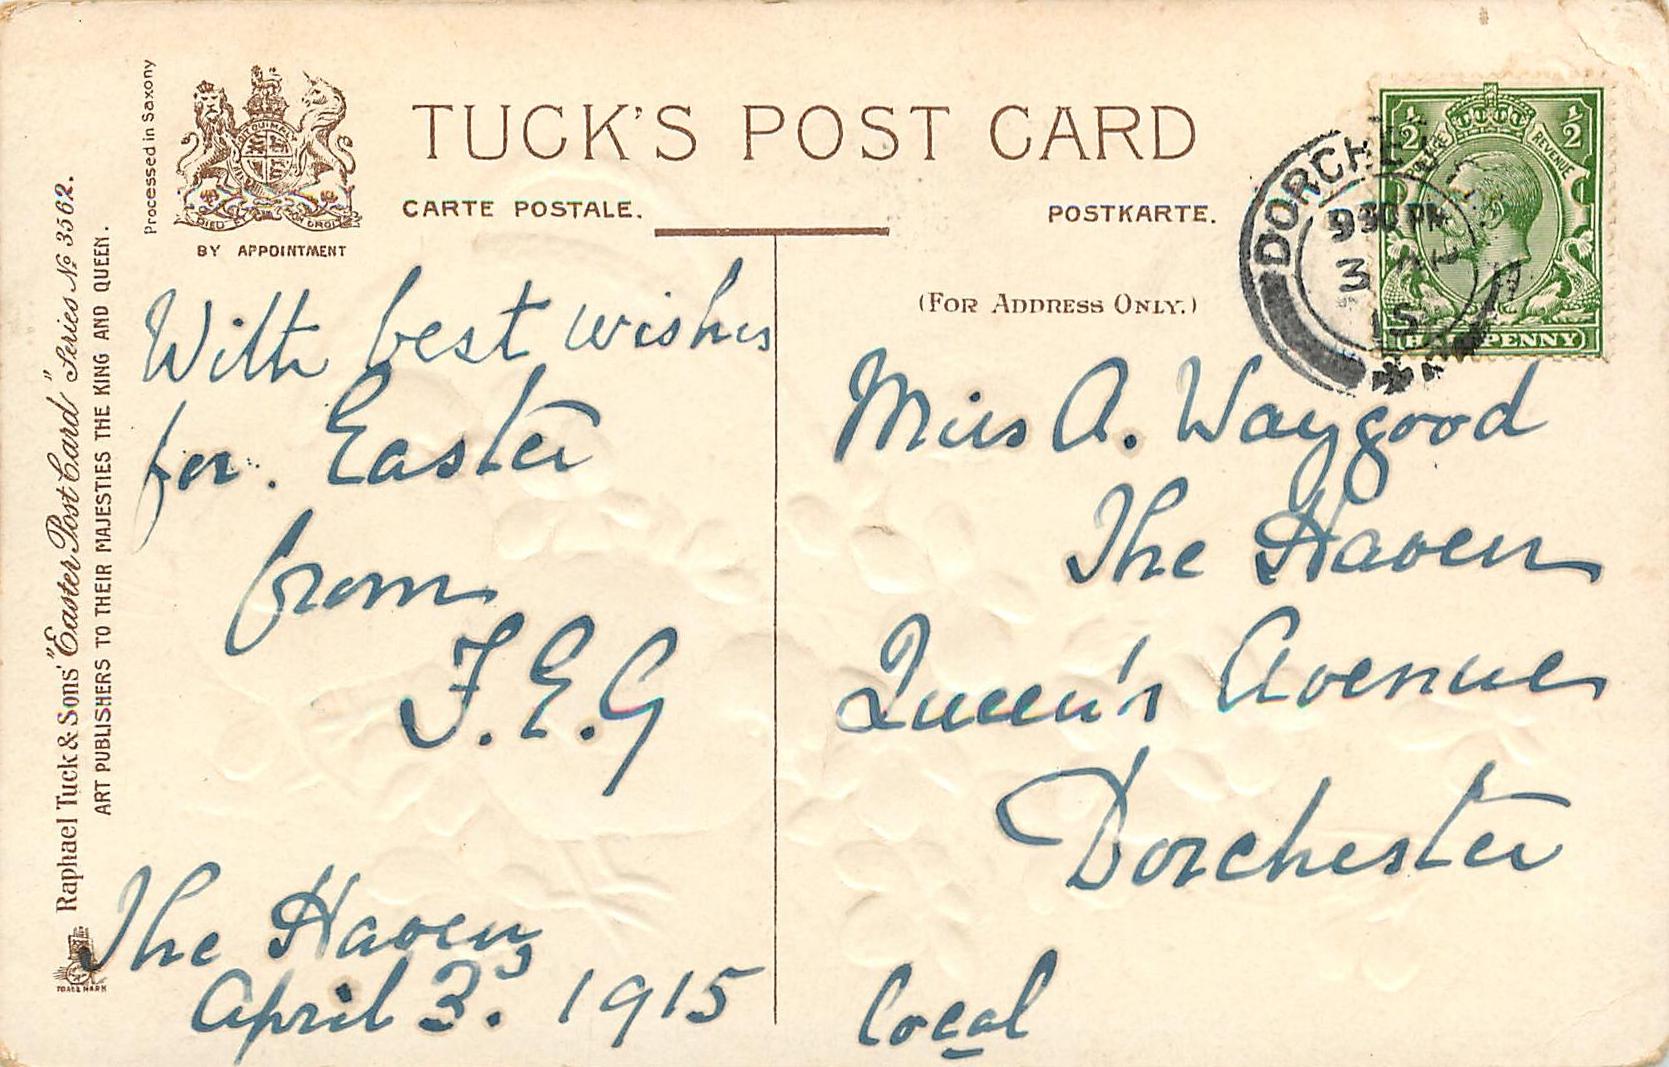 Processed in Saxony
BY APPOINTMENT
TUCK'S POST CARD
CARTE POSTALE.
POSTKARTE.
(FOR ADDRESS ONLY.)
Raphael Tuck & Sons' "Easter Post Card" Series No 3562.
ART PUBLISHERS TO THEIR MAJESTIES THE KING AND QUEEN.
TRADE MARK
With best wishes
for. Easter
from
F.E.G
The Haven,
April 3. 1915
½ ½
REVENUE
PENNY
DORCHE
9 30 PM
3
15
Miss A. Waygood
The Haven
Queen's Avenue
Dorchester
local